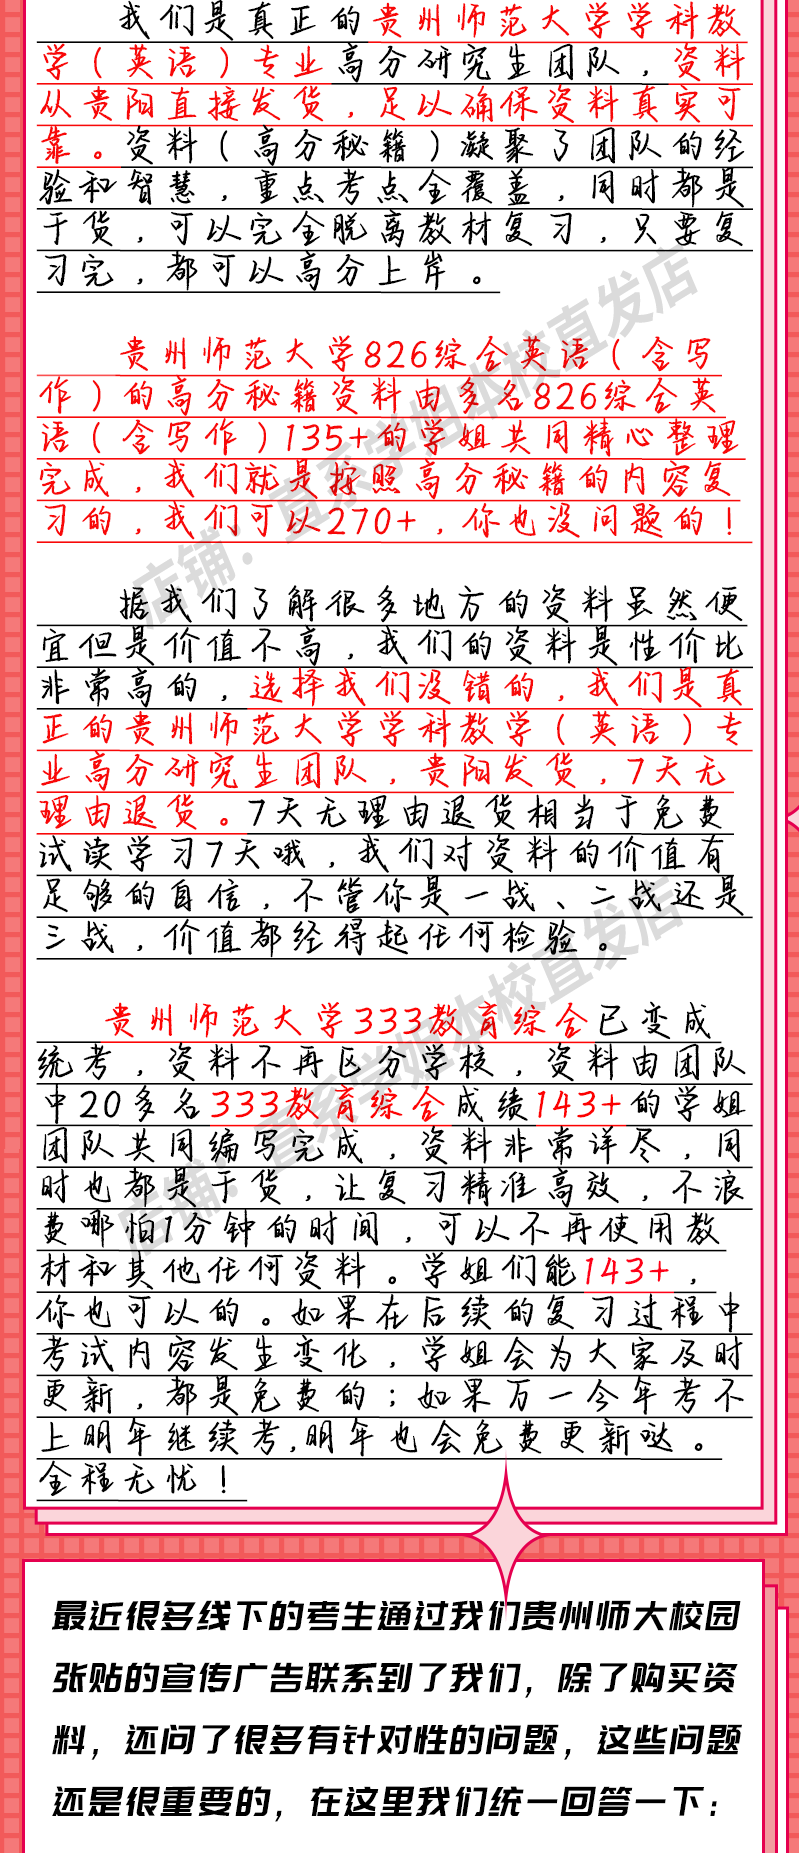 我们是真正的贵州师范大学学科教
学（英语）专业高分研究生团队，资料
从贵阳直接发货，足以确保资料真实可
靠。资料（高分秘籍）凝聚了团队的经
验和智慧，重点考点全覆盖，同时都是
干货，可以完全脱离教材复习，只要复
习完，都可以高分上岸。
贵州师范大学826综合英语（含写
作）的高分秘籍资料由多名826综合英
语（含写作）135+的学姐共同精心整理
完成，我们就是按照高分秘籍的内容复
习的，我们可以270+，你也没问题的！
据我们了解很多地方的资料虽然便
宜但是价值不高，我们的资料是性价比
非常高的，选择我们没错的，我们是真
正的贵州师范大学学科教学（英语）专
业高分研究生团队，贵阳发货，7天无
理由退货。7天无理由退货相当于免费
试读学习7天哦，我们对资料的价值有
足够的自信，不管你是一战、二战还是
三战，价值都经得起任何检验。
贵州师范大学333教育综合已变成
统考，资料不再区分学校，资料由团队
中20多名333教育综合成绩143+的学姐
团队共同编写完成，资料非常详尽，同
时也都是干货，让复习精准高效，不浪
费哪怕1分钟的时间，可以不再使用教
材和其他任何资料。学姐们能143+，
你也可以的。如果在后续的复习过程中
考试内容发生变化，学姐会为大家及时
更新，都是免费的；如果万一今年考不
上明年继续考,明年也会免费更新哒。
全程无忧！
店铺：直系学姐本校直发店
店铺：直系学姐本校直发店
最近很多线下的考生通过我们贵州师大校园
张贴的宣传广告联系到了我们，除了购买资
料，还问了很多有针对性的问题，这些问题
还是很重要的，在这里我们统一回答一下：